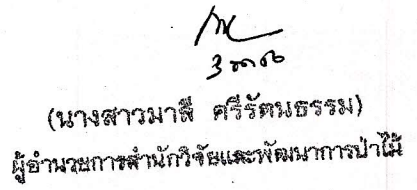 (นางสาวมาลี ศรีรัตนธรรม)
ผู้อำนวยการสำนักวิจัยและพัฒนาการป่าไม้